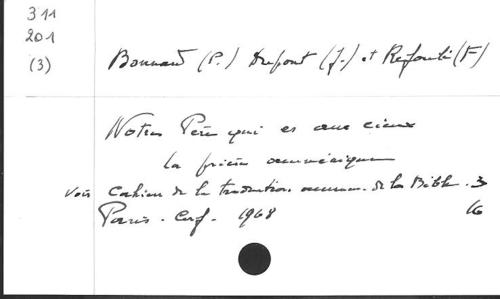 311
201
(3)
Bonnard (P.) Dupont (J.) et Refoulé (F)
Notre Père qui es aux cieux
la prière œcuménique
Voir Cahier de la traduction œcumen. de la Bible. 3
Paris. Cerf. 1968
16